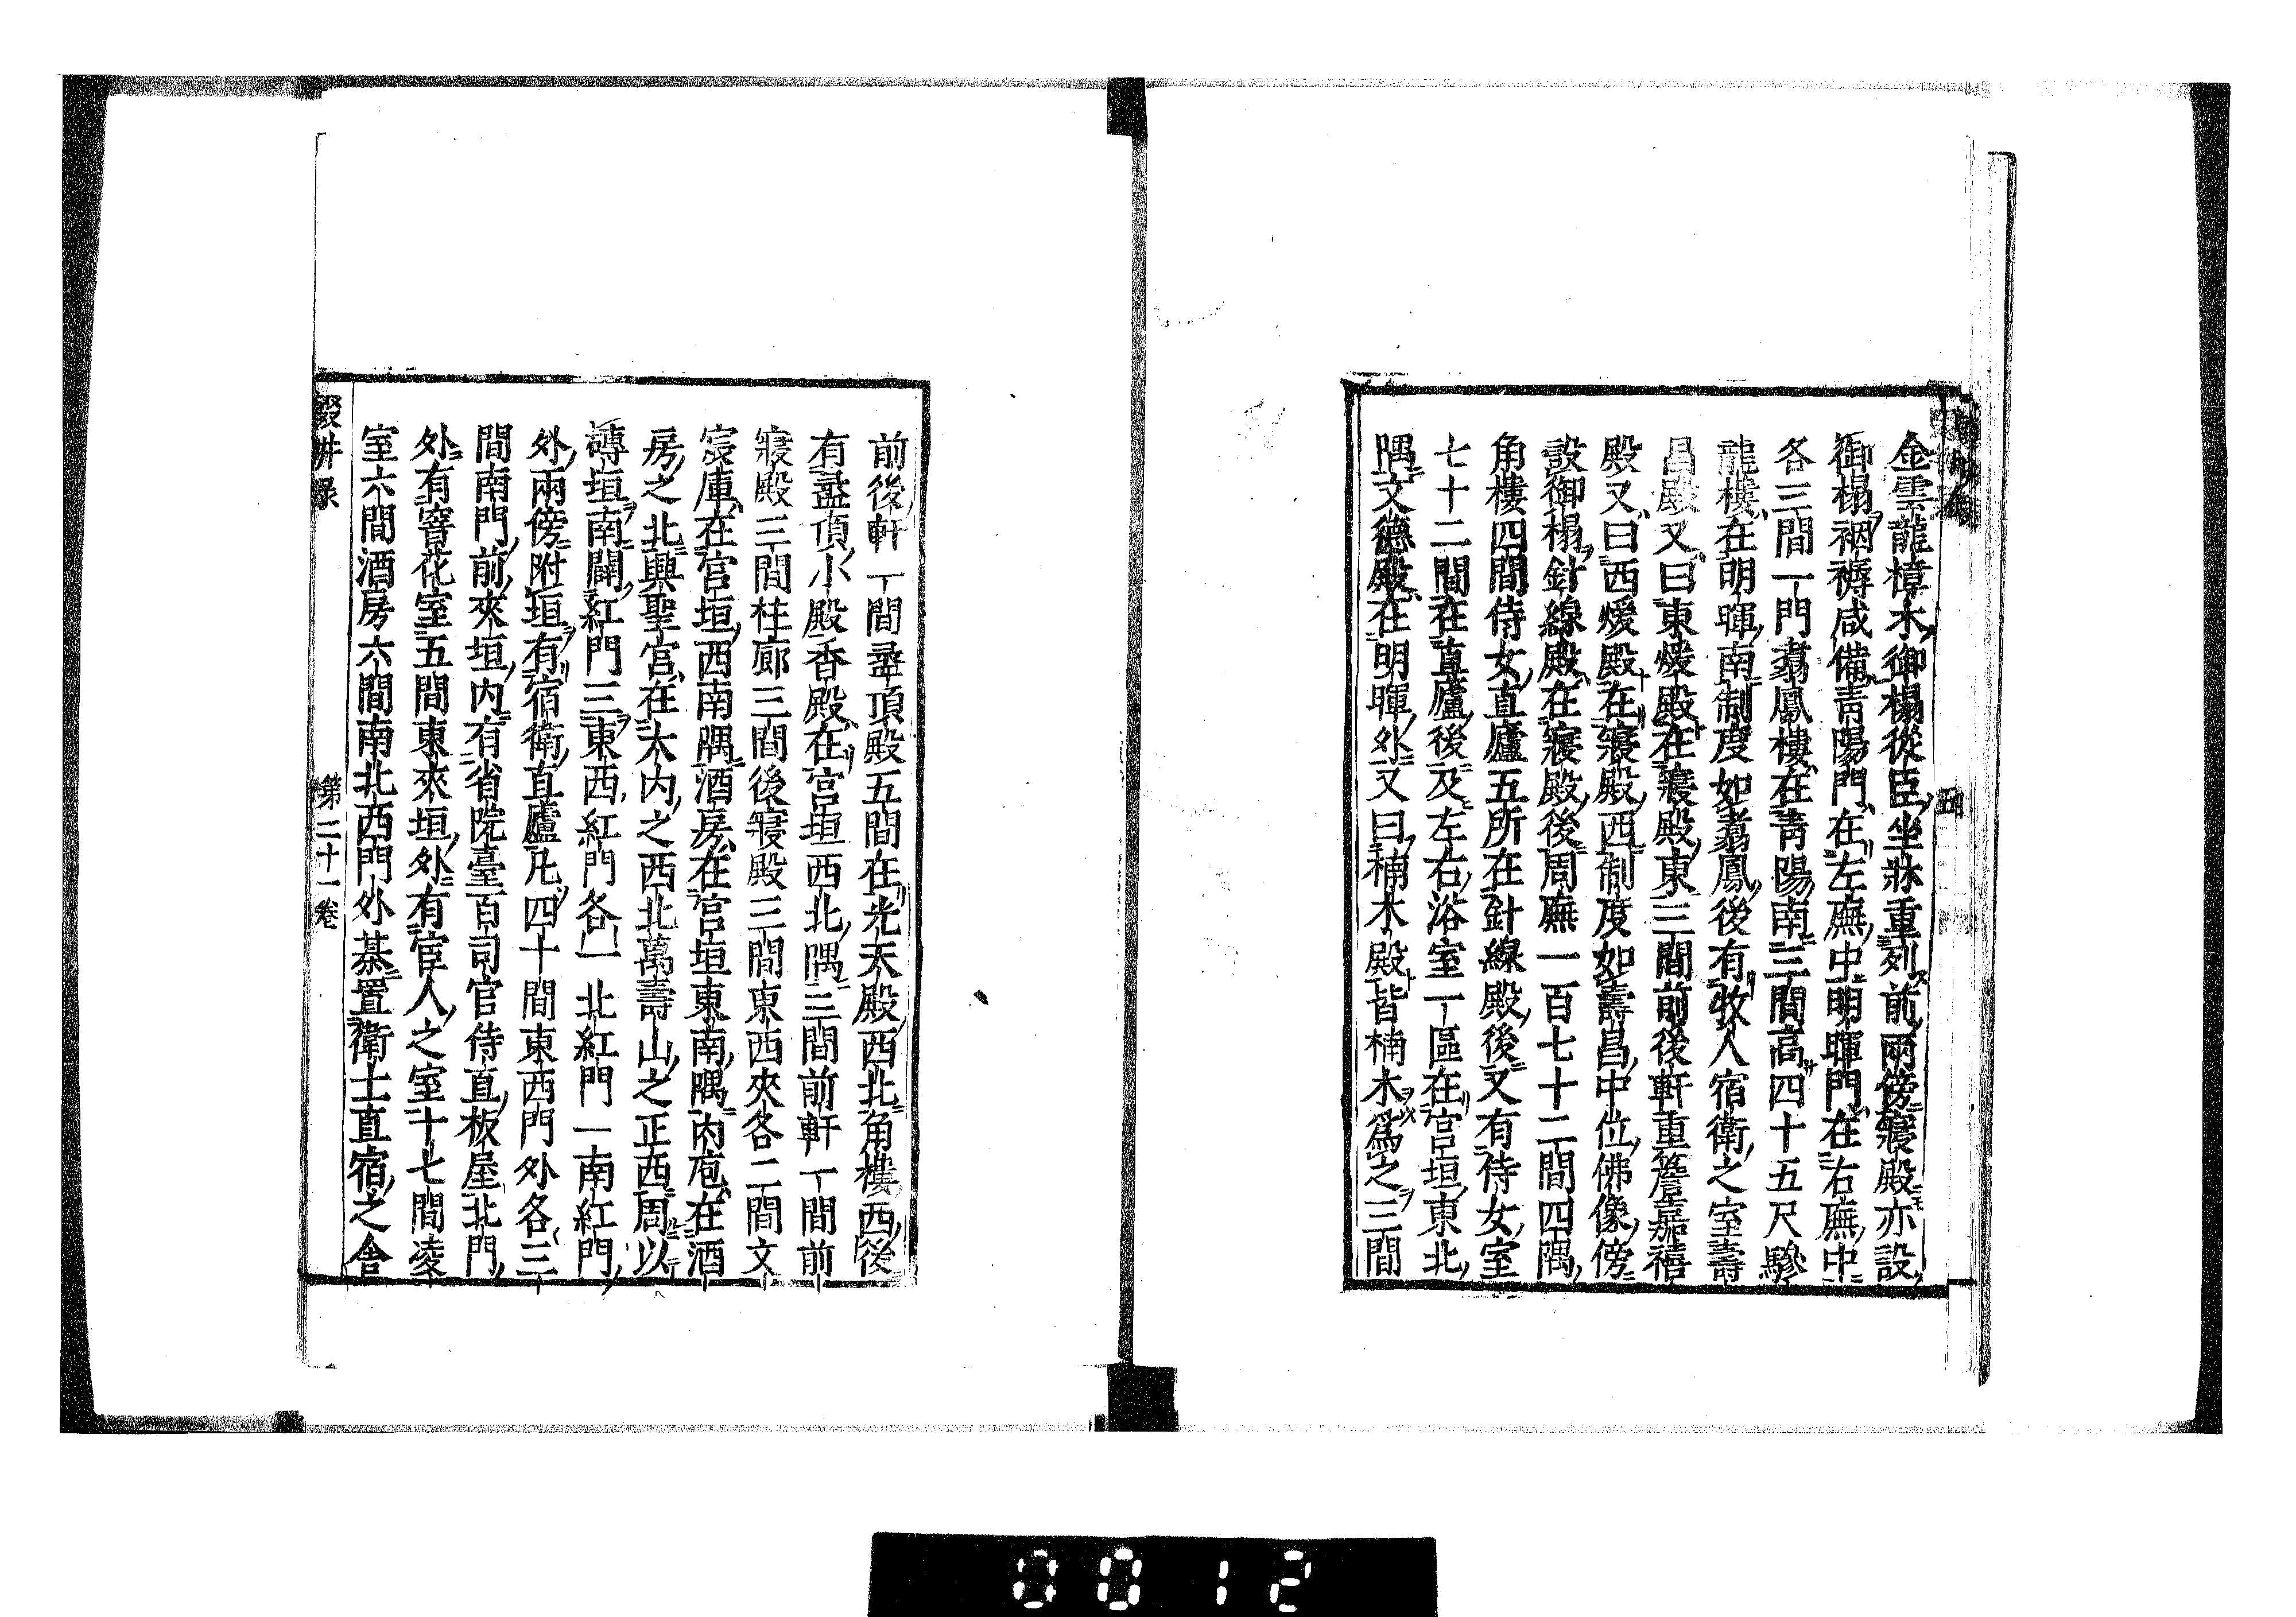 金雲龍樟木御榻從臣坐牀重列前兩傍寢殿亦設
御榻裀褥咸備青陽門在左廡中明暉門在右廡中
各三間一門翥鳳樓在青陽南三間高四十五尺驂
龍樓在明暉南制度如翥鳳後有牧人宿衛之室壽
昌殿又曰東煖殿在寢殿東三間前後軒重簷嘉禧
殿又曰西煖殿在寢殿西制度如壽昌中位佛像傍
設御榻針線殿在寢殿後周廡一百七十二間四隅
角樓四間侍女直廬五所在針線殿後又有侍女室
七十二間在直廬後及左右浴室一區在宮垣東北
隅文德殿在明暉外又曰楠木殿皆楠木爲之三間
五
前後軒一間盝頂殿五間在光天殿西北角樓西後
有盝頂小殿香殿在宮垣西北隅三間前軒一間前
寢殿三間柱廊三間後寢殿三間東西夾各二間文
宸庫在宮垣西南隅酒房在宮垣東南隅内庖在酒
房之北興聖宮在大内之西北萬壽山之正西周以
磚垣南闢紅門三東西紅門各一北紅門一南紅門
外兩傍附垣有宿衛直廬凡四十間東西門外各三
間南門前夾垣内有省院臺百司官侍直板屋北門
外有窨花室五間東夾垣外有宦人之室十七間凌
室六間酒房六間南北西門外棊置衛士直宿之舍
輟耕录
第二十一卷
0012